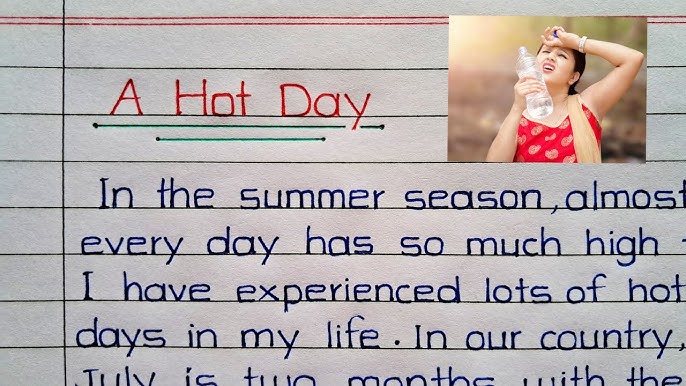 A Hot Day
In the summer season, almost
every day has so much high
I have experienced lots of hot
days in my life. In our country,
July is two months with the